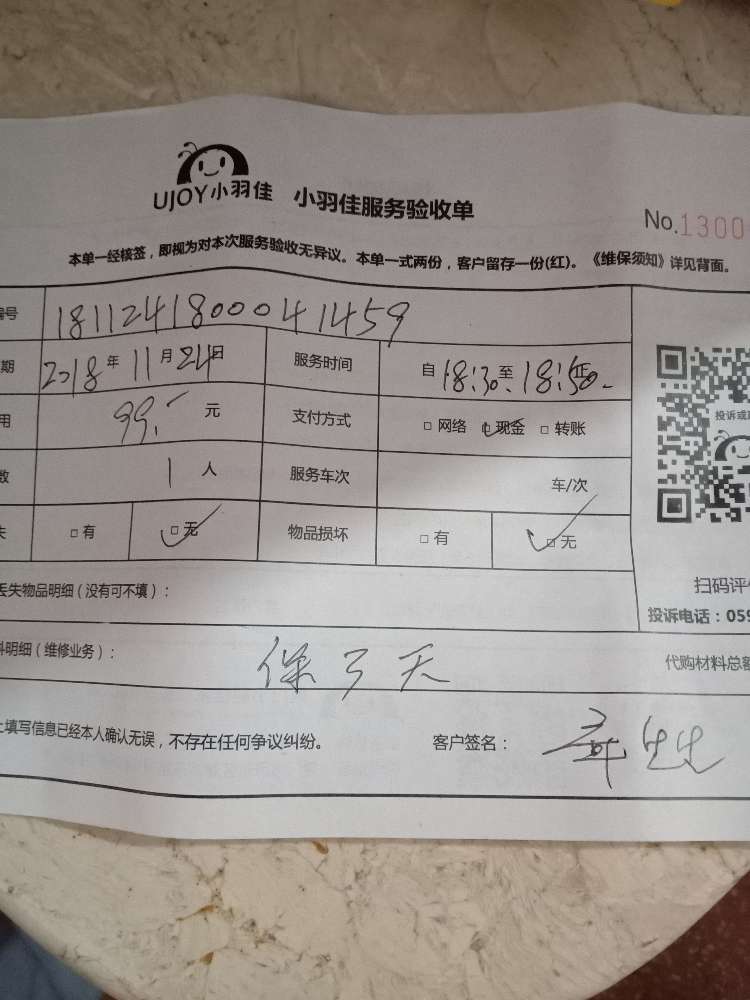 UJOY小羽佳 小羽佳服务验收单
No.1300
本单一经核签，即视为对本次服务验收无异议。本单一式两份，客户留存一份(红)。《维保须知》详见背面。
编号 1811241800041459
期 2018年11月24日 服务时间 自18:30至18:50
用 99.- 元 支付方式 □ 网络 □ 现金 □ 转账
数 1人 服务车次 车/次
失 □ 有 □ 无 物品损坏 □ 有 □ 无
投诉或
扫码评
投诉电话：059
丢失物品明细（没有可不填）：
料明细（维修业务）： 保 天 代购材料总额
上填写信息已经本人确认无误，不存在任何争议纠纷。 客户签名： 生